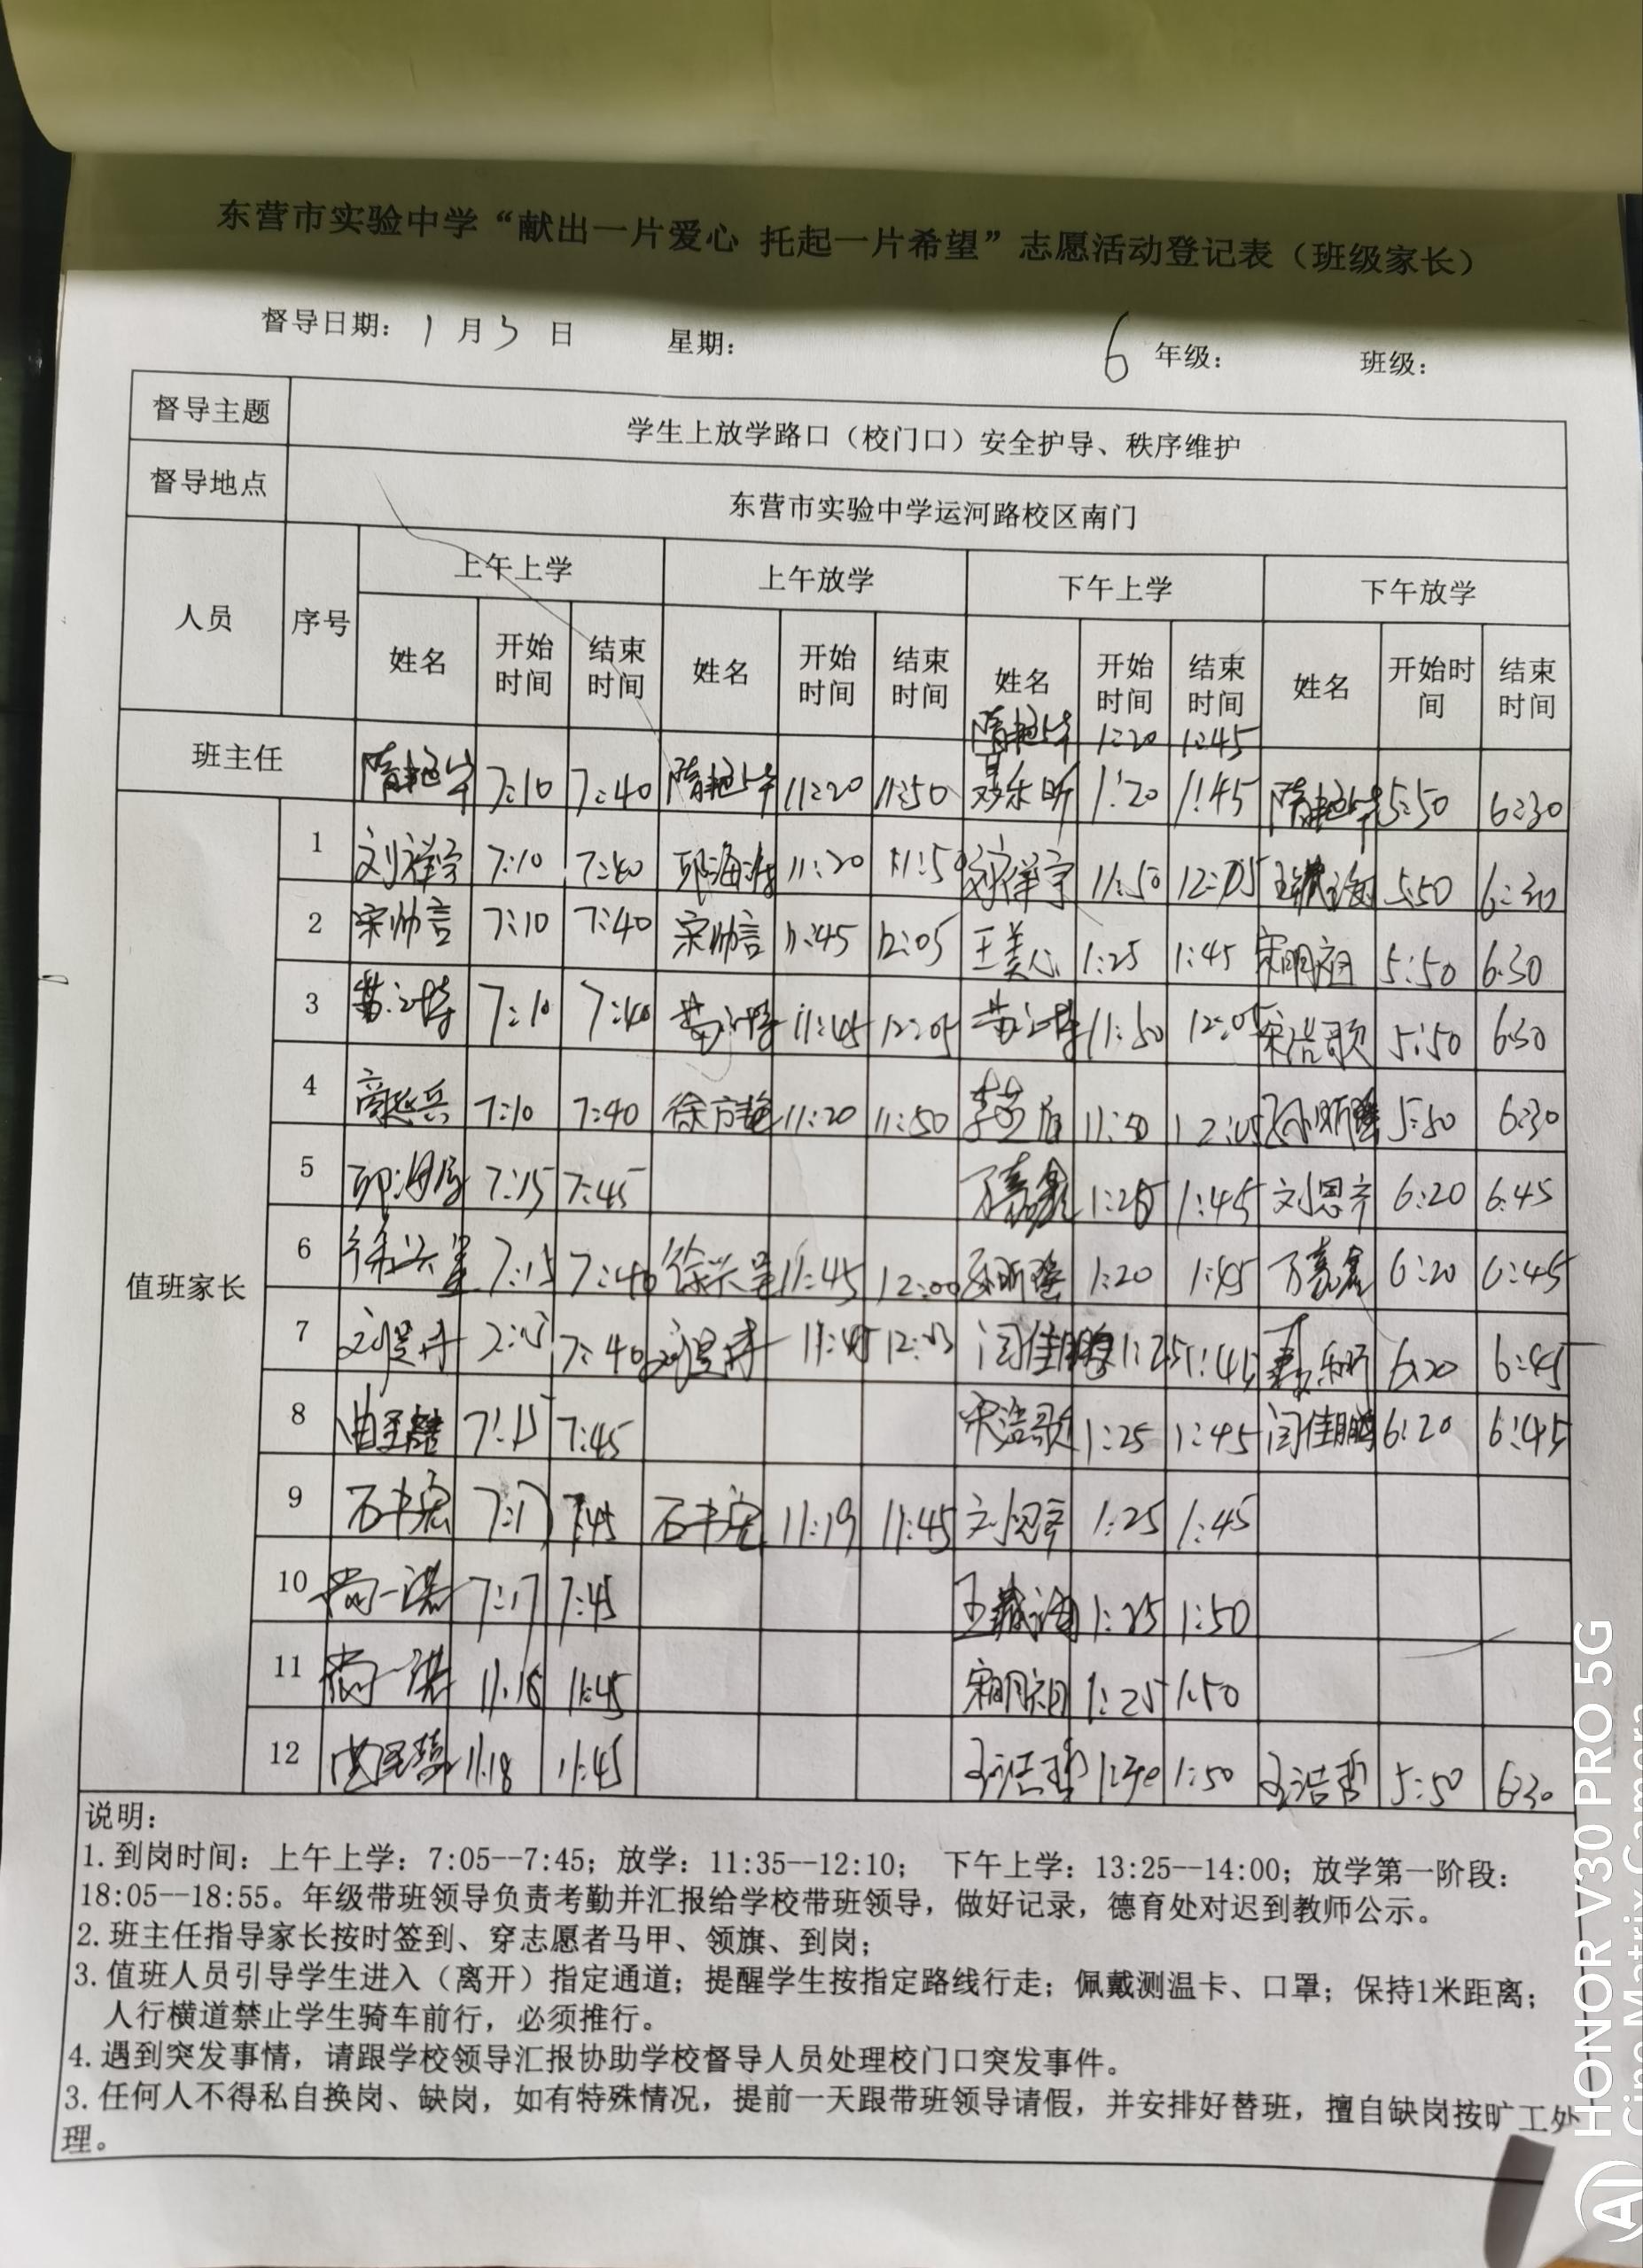 东营市实验中学“献出一片爱心 托起一片希望”志愿活动登记表（班级家长）
督导日期： 1 月 3 日 星期： 6 年级： 班级：
督导主题 学生上放学路口（校门口）安全护导、秩序维护
督导地点 东营市实验中学运河路校区南门
人员 序号 上午上学 上午放学 下午上学 下午放学
姓名 开始时间 结束时间 姓名 开始时间 结束时间 姓名 开始时间 结束时间 姓名 开始时间 结束时间
1:20 1:45
班主任 7:10 7:40 11:20 11:50 1:20 1:45 5:50 6:30
值班家长
1 刘祥宇 7:10 7:40 11:20 11:50 刘祥宇 11:50 12:05 5:50 6:30
2 宋帅言 7:10 7:40 宋帅言 11:45 12:05 王美心 1:25 1:45 宋明祖 5:50 6:30
3 7:10 7:40 11:45 12:05 11:50 12:05 宋浩歌 5:50 6:30
4 7:10 7:40 徐方艳 11:20 11:50 11:50 12:05 5:50 6:30
5 7:15 7:45 万嘉鑫 1:25 1:45 刘恩齐 6:20 6:45
6 徐兴星 7:15 7:40 徐兴星 11:45 12:00 1:20 1:45 万嘉鑫 6:20 6:45
7 7:40 11:45 闫佳鹏 1:25 1:45 6:20 6:45
8 7:15 7:45 宋浩歌 1:25 1:45 闫佳鹏 6:20 6:45
9 石书宏 7:17 7:45 石书宏 11:19 11:45 刘恩齐 1:25 1:45
10 尚一诺 7:17 7:45 1:25 1:50
11 尚一诺 11:45 宋明祖 1:25 1:50
12 11:18 11:45 王浩哲 1:50 王浩哲 5:50 6:30
说明：
1.到岗时间：上午上学：7:05--7:45；放学：11:35--12:10； 下午上学：13:25--14:00；放学第一阶段：
18:05--18:55。年级带班领导负责考勤并汇报给学校带班领导，做好记录，德育处对迟到教师公示。
2.班主任指导家长按时签到、穿志愿者马甲、领旗、到岗；
3.值班人员引导学生进入（离开）指定通道；提醒学生按指定路线行走；佩戴测温卡、口罩；保持1米距离；
人行横道禁止学生骑车前行，必须推行。
4.遇到突发事情，请跟学校领导汇报协助学校督导人员处理校门口突发事件。
3.任何人不得私自换岗、缺岗，如有特殊情况，提前一天跟带班领导请假，并安排好替班，擅自缺岗按旷工处
理。
HONOR V30 PRO 5G
Cine Matrix Camera